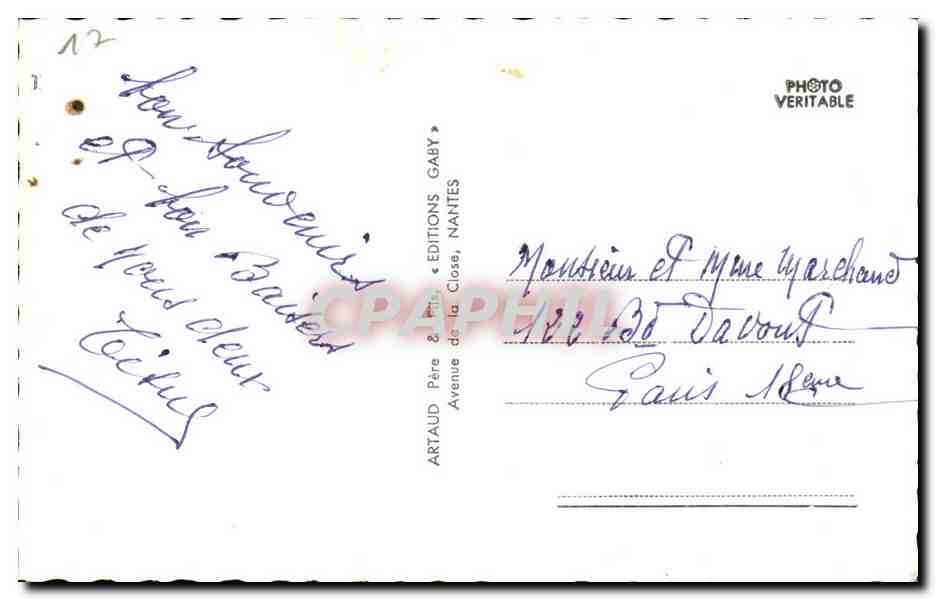 17
bon souvenirs
et bon Baisers
de nous deux
ARTAUD Père & Fils, « EDITIONS GABY »
Avenue de la Close, NANTES
PHOTO
VERITABLE
Monsieur et Mme Marchand
122 Bd Davout
Paris 18eme
CPAPHIL